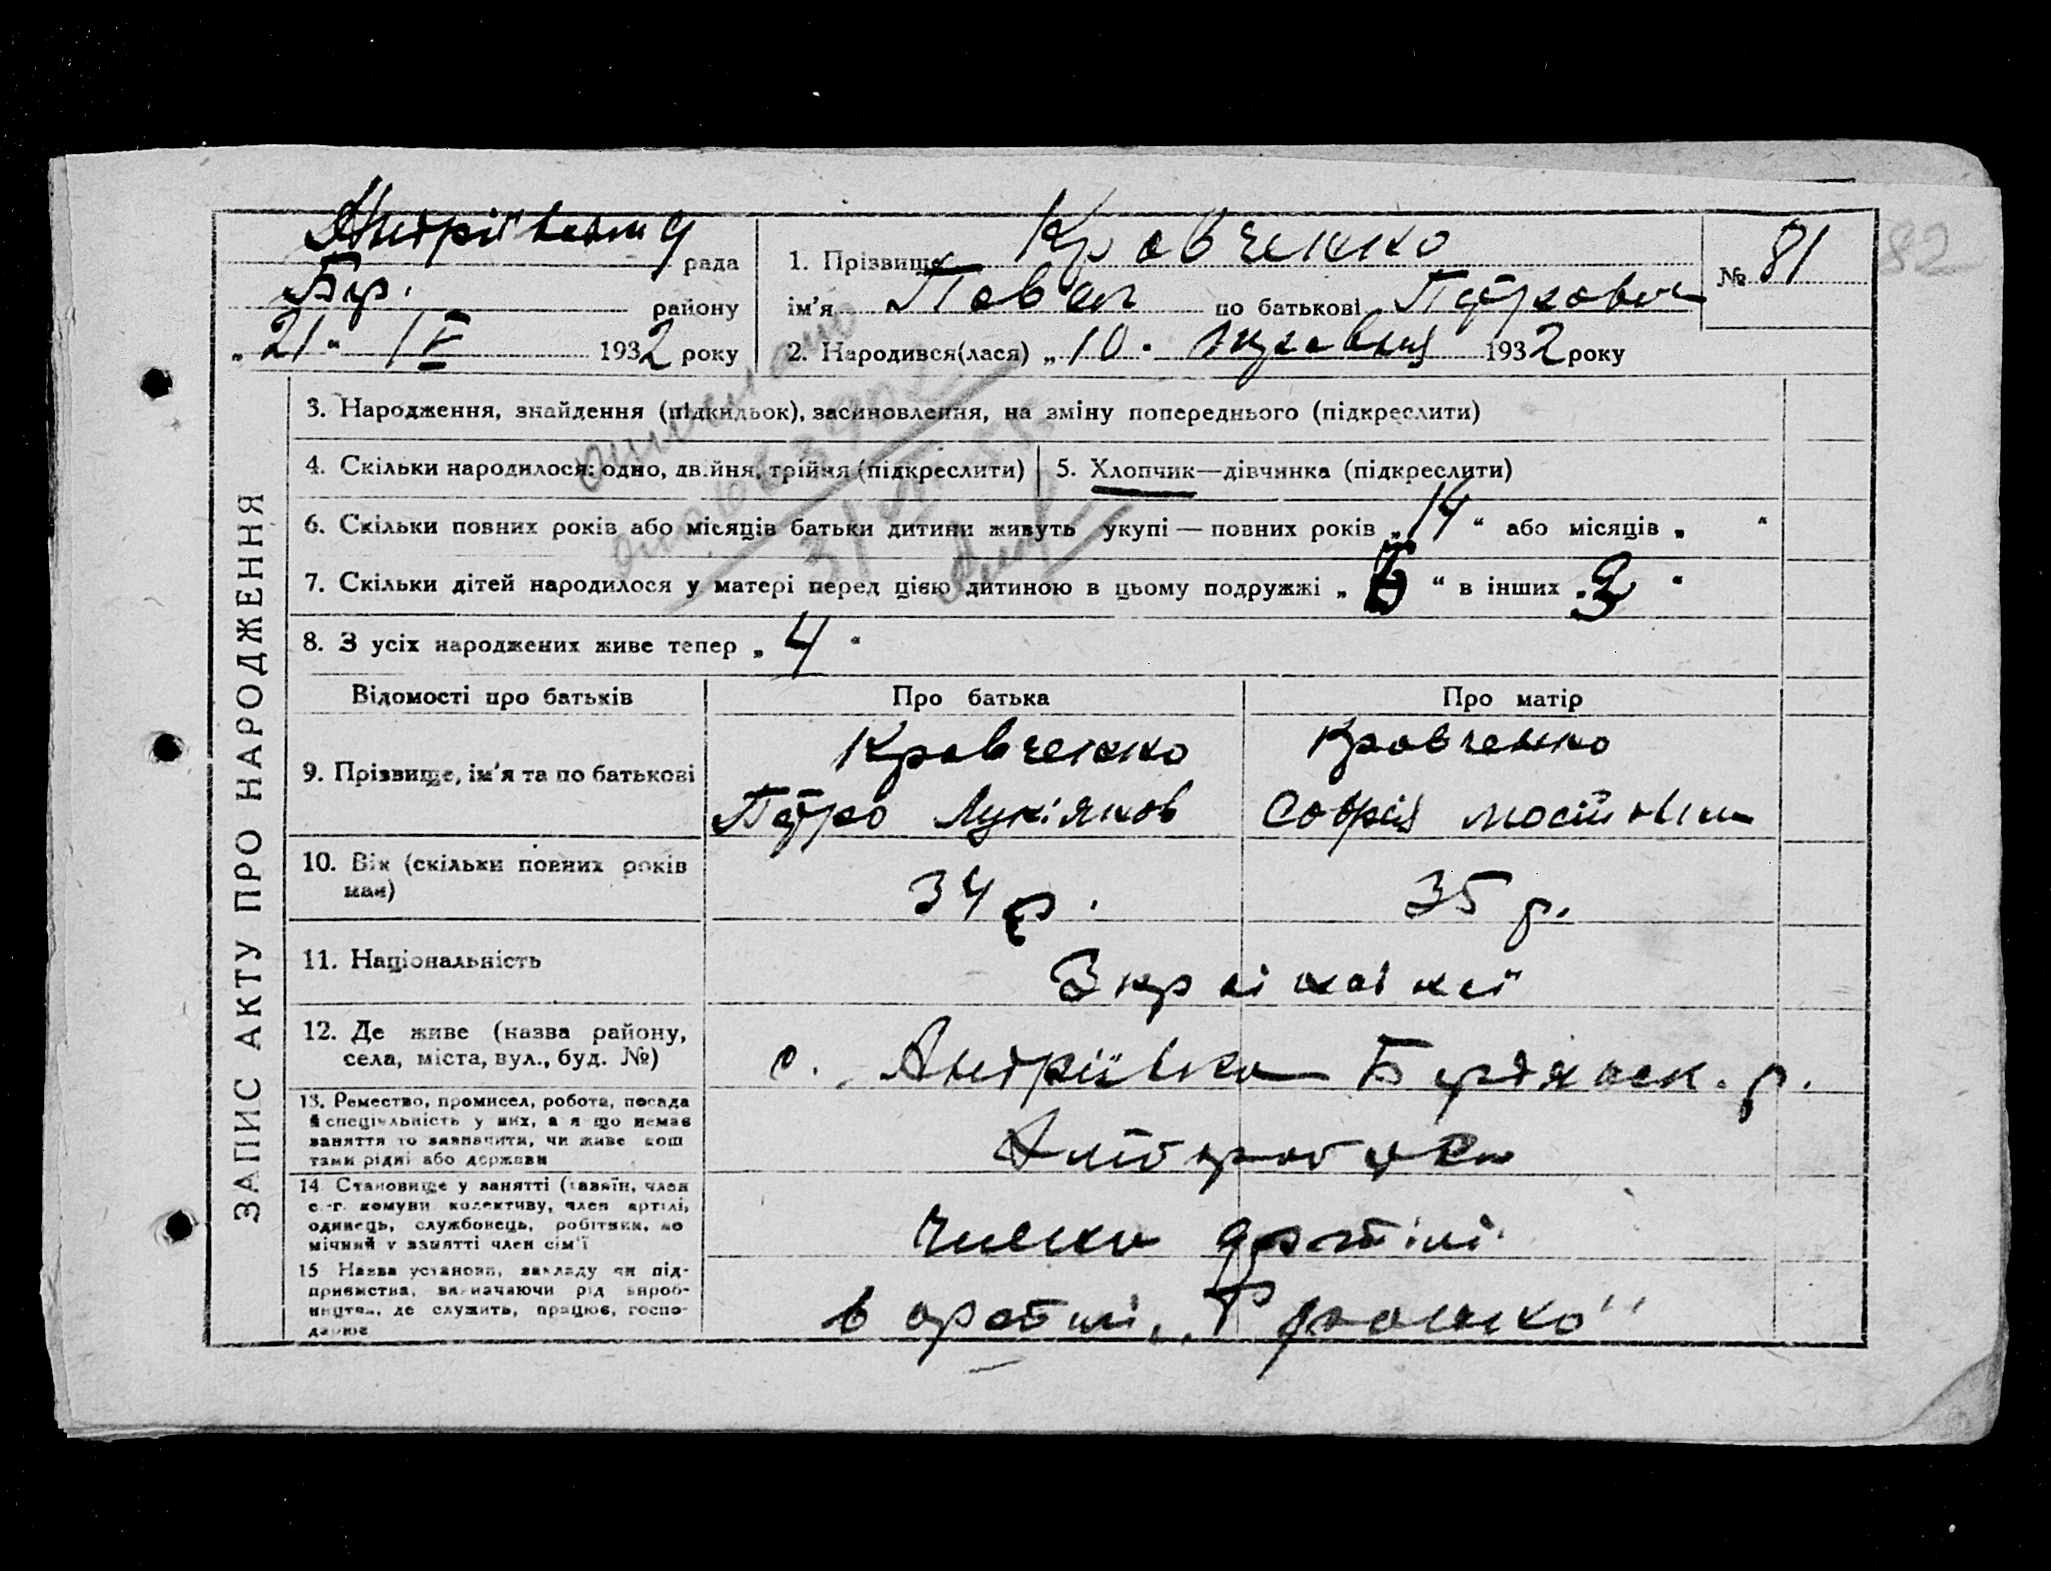 Андріївська рада
Бер. району
„21“ IV 1932 року
1. Прізвище Кравченко
ім'я Павел по батькові Петрович
2. Народився(лася) „10. 1932 року
№ 81
82
ЗАПИС АКТУ ПРО НАРОДЖЕННЯ
3. Народження, знайдення (підкидьок), засиновлення, на зміну попереднього (підкреслити)
4. Скільки народилося: одно, двійня, трійня (підкреслити)
5. Хлопчик—дівчинка (підкреслити)
6. Скільки повних років або місяців батьки дитини живуть укупі — повних років „14“ або місяців „ “
7. Скільки дітей народилося у матері перед цією дитиною в цьому подружжі „6“ в інших „3“
8. З усіх народжених живе тепер „4“
Відомості про батьків
Про батька
Про матір
9. Прізвище, ім'я та по батькові
Кравченко
Петро Лукіянов
Кравченко
Софія
10. Вік (скільки повних років має)
34 р.
35 р.
11. Національність
Українські
12. Де живе (назва району,
села, міста, вул., буд. №)
с. Андріївка Бердянск. р.
13. Ремество, промисел, робота, посада
й спеціяльність у них, а якщо немає
заняття то зазначити, чи живе кош
тами рідні або держави
14 Становище у занятті (хазяїн, член
с.-г. комуни колективу, член артілі,
одинець, службовець, робітник, по
мічний у занятті член сім'ї
члени артілі
15 Назва установи, закладу чи під-
приємства, зазначаючи рід вироб-
ництва, де служить, працює, госпо-
дарює
в артілі